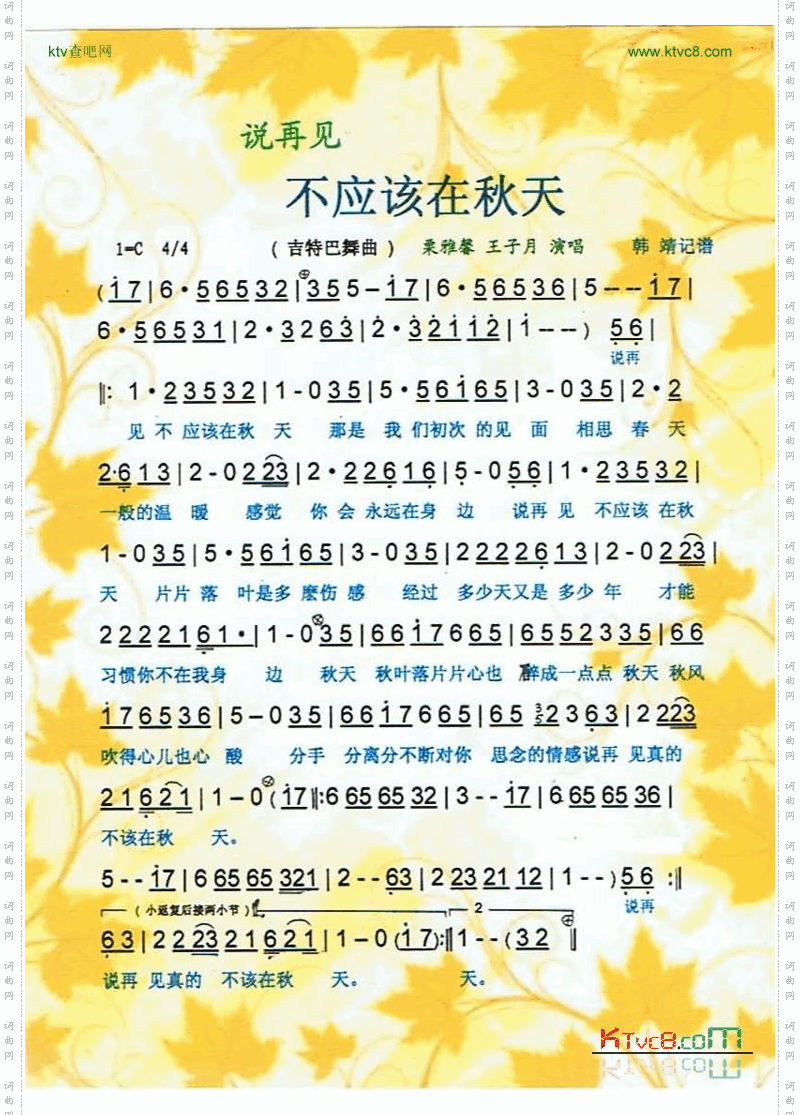 ktv查吧网 www.ktvc8.com
说再见
不应该在秋天
1=C 4/4 （吉特巴舞曲） 栗雅馨 王子月 演唱 韩 靖记谱
(i7|6·56532|355-i7|6·56536|5--i7|
6·56531|2·3263|2·32112|1---) 56|
说再
‖: 1·23532|1-035|5·56165|3-035|2·2
见 不 应该在秋 天 那是 我 们初次 的见 面 相思 春 天
2·613|2-0223|2·22616|5-056|1·23532|
一般的温 暖 感觉 你 会 永远在身 边 说再 见 不应该 在秋
1-035|5·56165|3-035|2222613|2-0223|
天 片片 落 叶是多 麽伤 感 经过 多少天又是 多少 年 才能
2222161·|1-035|6617665|65552335|66
习惯你不在我身 边 秋天 秋叶落片片心也 醉成一点点 秋天 秋风
176536|5-035|6617665|65 32 2363|2223
吹得心儿也心 酸 分手 分离分不断对你 思念的情感说再 见真的
21621|1-0(i7‖:6 65 65 32|3--i7|6 65 65 36|
不该在秋 天。
5--i7|6 65 65 321|2--63|2 23 21 12|1--) 56 :‖
（小返复后接两小节） 2 说再
63|2223 21621|1-0(i7):‖1--(32‖
说再 见真的 不该在秋 天。 天。
KTvc8.com
词曲网